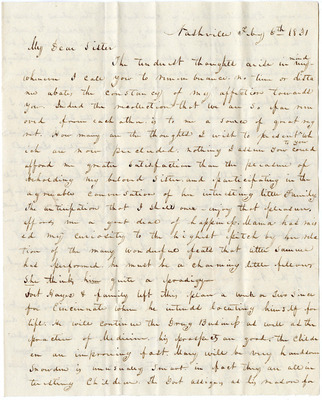 Nashville Feby 6th 1831
My Dear Sister
The tenderest thoughts arise in my mind
whenever I call you to remembrance no time or dista
nce abates the constancy of my affection towards
you. Indeed the recollection that we are so far rem
oved from each other is to me a source of great reg
ret. How many are the thoughts I wish to present wh
ich are now precluded. nothing I assure you could
afford me greater satisfaction than the pleasure of
beholding my beloved Sister and participating in the
agreeable conversation of her interesting little Family
The anticipation that I shall once enjoy that pleasure,
affords me a great deal of happiness. Mama has rais
ed my curiosity to the highest pitch by her rela
tion to you of the many wonderful feats that little Samuel
has performed he must be a charming little fellow
She thinks him quite a prodigy.
Doct Hayes & family left this place a week or two since
for Cincinnati where he intends locating himself for
life. He will continue the Drug Business as well as the
practice of Medicine. his prospects are good. the Childr
en are improving fast. Mary will be very handsome
Snowden is unusually smart in fact they are all in
teresting Children. The Doct assigns as his reason for